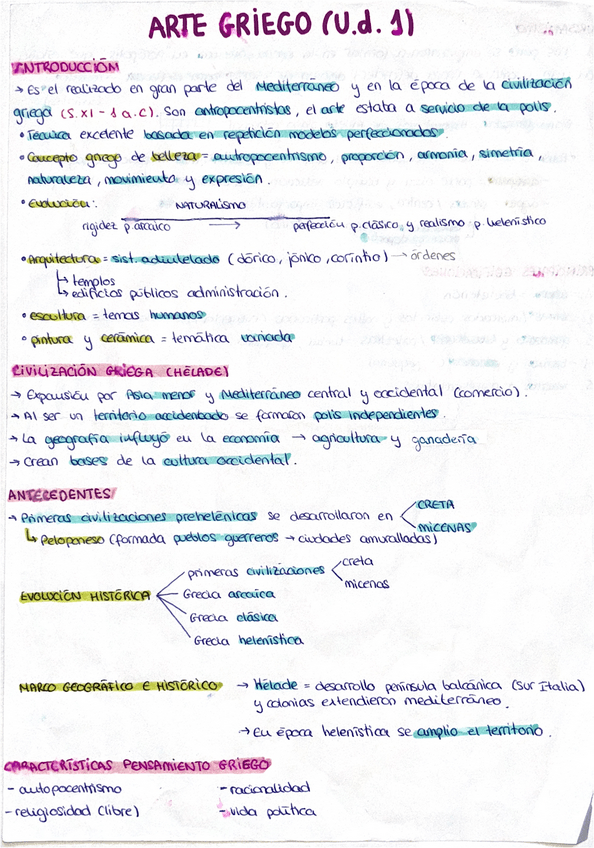 ARTE GRIEGO (U.d. 1)
INTRODUCCIÓN
→ Es el realizado en gran parte del Mediterráneo y en la época de la civilización
griega (S. XI - 1 a.C). Son antropocentristas, el arte estaba a servicio de la polis.
• Técnica excelente basada en repetición modelos perfeccionados.
• Concepto griego de belleza = antropocentrismo, proporción, armonía, simetría,
naturaleza, movimiento y expresión.
• Evolución: NATURALISMO
rigidez p. arcaico → perfección p. clásico y realismo p. helenístico
• Arquitectura = sist. adintelado (dórico, jónico, corintio) → órdenes
↳ templos
↳ edificios públicos administración.
• escultura = temas humanos
• pintura y cerámica = temática variada
CIVILIZACIÓN GRIEGA (HÉLADE)
→ Expansión por Asia menor y Mediterráneo central y occidental (comercio).
→ Al ser un territorio accidentado se formaron polis independientes.
→ La geografía influyó en la economía → agricultura y ganadería
→ Crean bases de la cultura occidental.
ANTECEDENTES
→ Primeras civilizaciones prehelénicas se desarrollaron en < CRETA
MICENAS
↳ Peloponeso (formada pueblos guerreros → ciudades amuralladas)
EVOLUCIÓN HISTÓRICA
primeras civilizaciones < creta
micenas
Grecia arcaica
Grecia clásica
Grecia helenística
MARCO GEOGRÁFICO E HISTÓRICO → Hélade = desarrollo península balcánica (sur Italia)
y colonias extendieron mediterráneo.
→ En época helenística se amplio el territorio.
CARACTERÍSTICAS PENSAMIENTO GRIEGO
- autopocentismo - racionalidad
- religiosidad (libre) - vida política